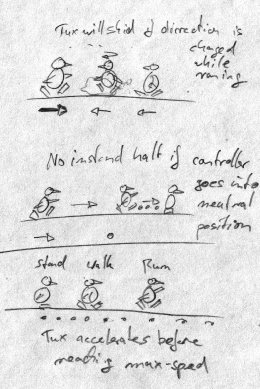 Tux will skid if direction is
changed
while
runing
No instand halt if controller
goes into
neutral
position
Stand walk Run
Tux accelerates before
reaching max-speed